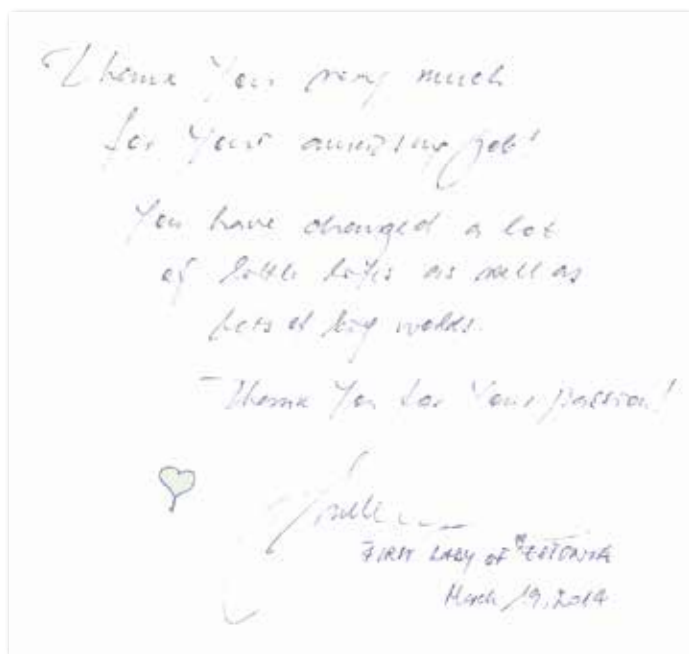 Thank You very much
for Your amazing job!
You have changed a lot
of little as well as
lots of big worlds.
Thank You for Your passion!
FIRST LADY OF ESTONIA
March 19, 2014